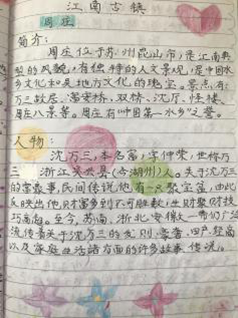 江南古镇
周庄
简介:
周庄位于苏州昆山市,是江南典
型的风貌,有独特的人文景观,是中国水
乡文化和吴地方文化的瑰宝。景点有:
万三故居、富安桥、双桥、沈厅、怪楼、
周庄八景等。周庄有"中国第一水乡"之誉。
人物:
沈万三,本名富,字仲荣,世称万
三 浙江吴兴县(今湖州)人。关于沈万三
的富故事,民间传说他有一只聚宝盆,由此
反映出他财富多到不可胜数,生财聚财技
巧高超。至今,苏南、浙北、安徽一带仍广泛
流传着关于沈万三的发财、豪奢、四户、轻商
以及家庭生活诸方面的许多故事、传说。